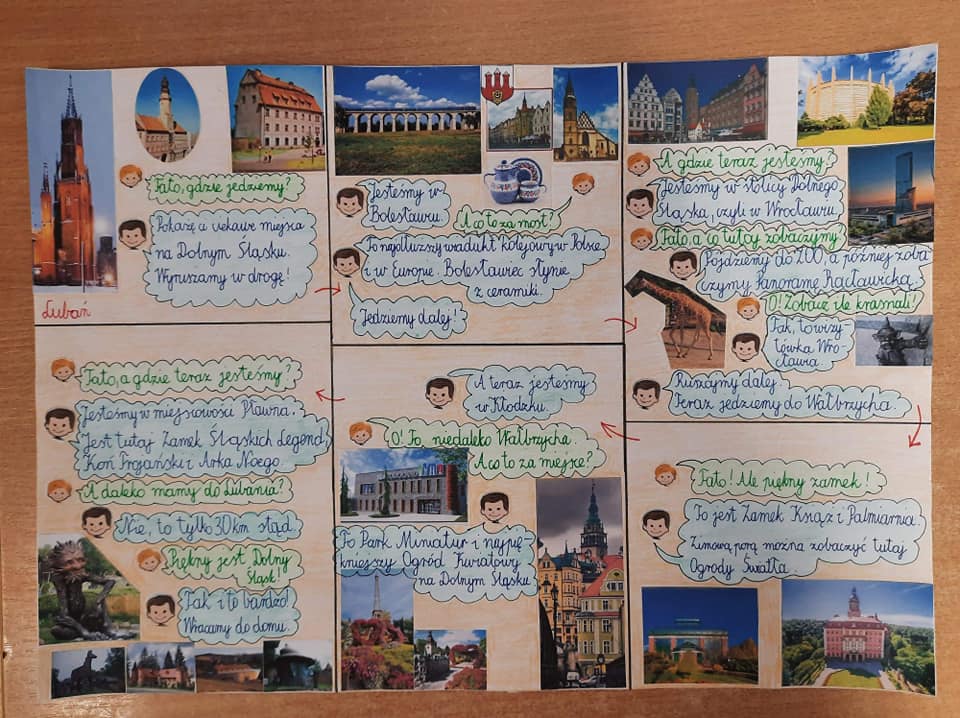 Tato, gdzie jedziemy?
Pokażę ci ciekawe miejsca
na Dolnym Śląsku.
Wyruszamy w drogę!
Lubań
Jesteśmy w
Bolesławcu.
A co to za most?
To najdłuższy wiadukt kolejowy w Polsce
i w Europie. Bolesławiec słynie
z ceramiki.
Jedziemy dalej!
A gdzie teraz jesteśmy?
Jesteśmy w stolicy Dolnego
Śląska, czyli w Wrocławiu.
Tato, a co tutaj zobaczymy
Pójdziemy do ZOO, a później zoba
czymy Panoramę Racławicką.
O! Zobacz ile krasnali!
Tak, to wizy-
tówka Wro-
cławia.
Ruszajmy dalej.
Teraz jedziemy do Wałbrzycha.
Tato! Ale piękny zamek!
To jest Zamek Książ i Palmiarnia.
Zimową porą można zobaczyć tutaj
Ogrody Światła.
A teraz jesteśmy
w Kłodzku.
O! To niedaleko Wałbrzycha.
A co to za miejsce?
To Park Miniatur i najpię-
kniejszy Ogród Kwiatowy
na Dolnym Śląsku
Tato, a gdzie teraz jesteśmy?
Jesteśmy w miejscowości Pławna.
Jest tutaj Zamek Śląskich Legend,
Koń Trojański i Arka Noego.
A daleko mamy do Lubania?
Nie, to tylko 30 km stąd.
Piękny jest Dolny
Śląsk!
Tak i to bardzo!
Wracamy do domu.